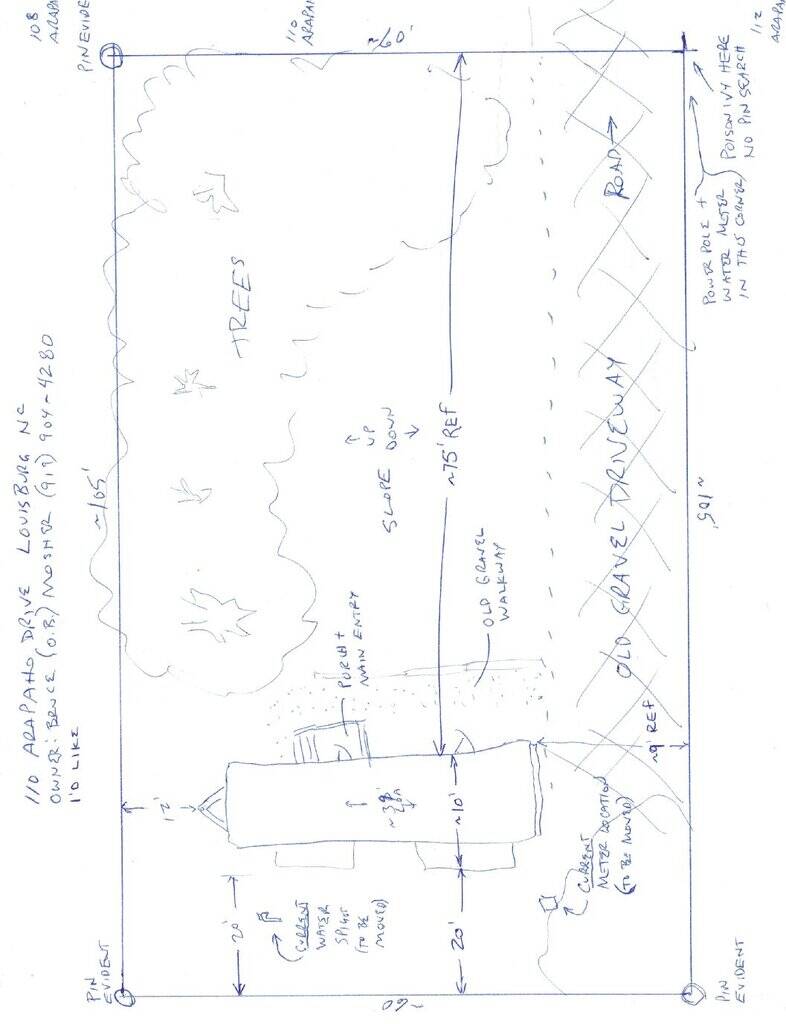 110 ARAPAHO DRIVE LOUISBURG NC
OWNER: BRUCE (O.B.) MOSHER (919) 904-4280
I'D LIKE
108
ARAPA
PIN EVIDE
110
ARAPA
112
ARAPA
~60'
~165'
TREES
SLOPE
UP
DOWN
~75' REF
ROAD
POISON IVY HERE
NO PIN SEARCH
POWER POLE +
WATER METER
IN THIS CORNER
OLD GRAVEL DRIVEWAY
~165'
OLD GRAVEL
WALKWAY
PORCH +
MAIN ENTRY
~9' REF
12'
~10'
20'
20'
CURRENT
WATER
SPIGOT
(TO BE
MOVED)
CURRENT
METER LOCATION
(TO BE MOVED)
PIN
EVIDENT
~60
PIN
EVIDENT